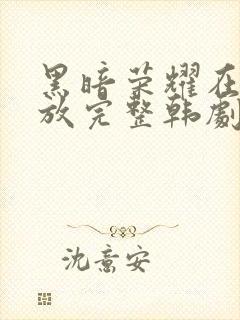 黑暗荣耀在
放完整韩劇
沈意安